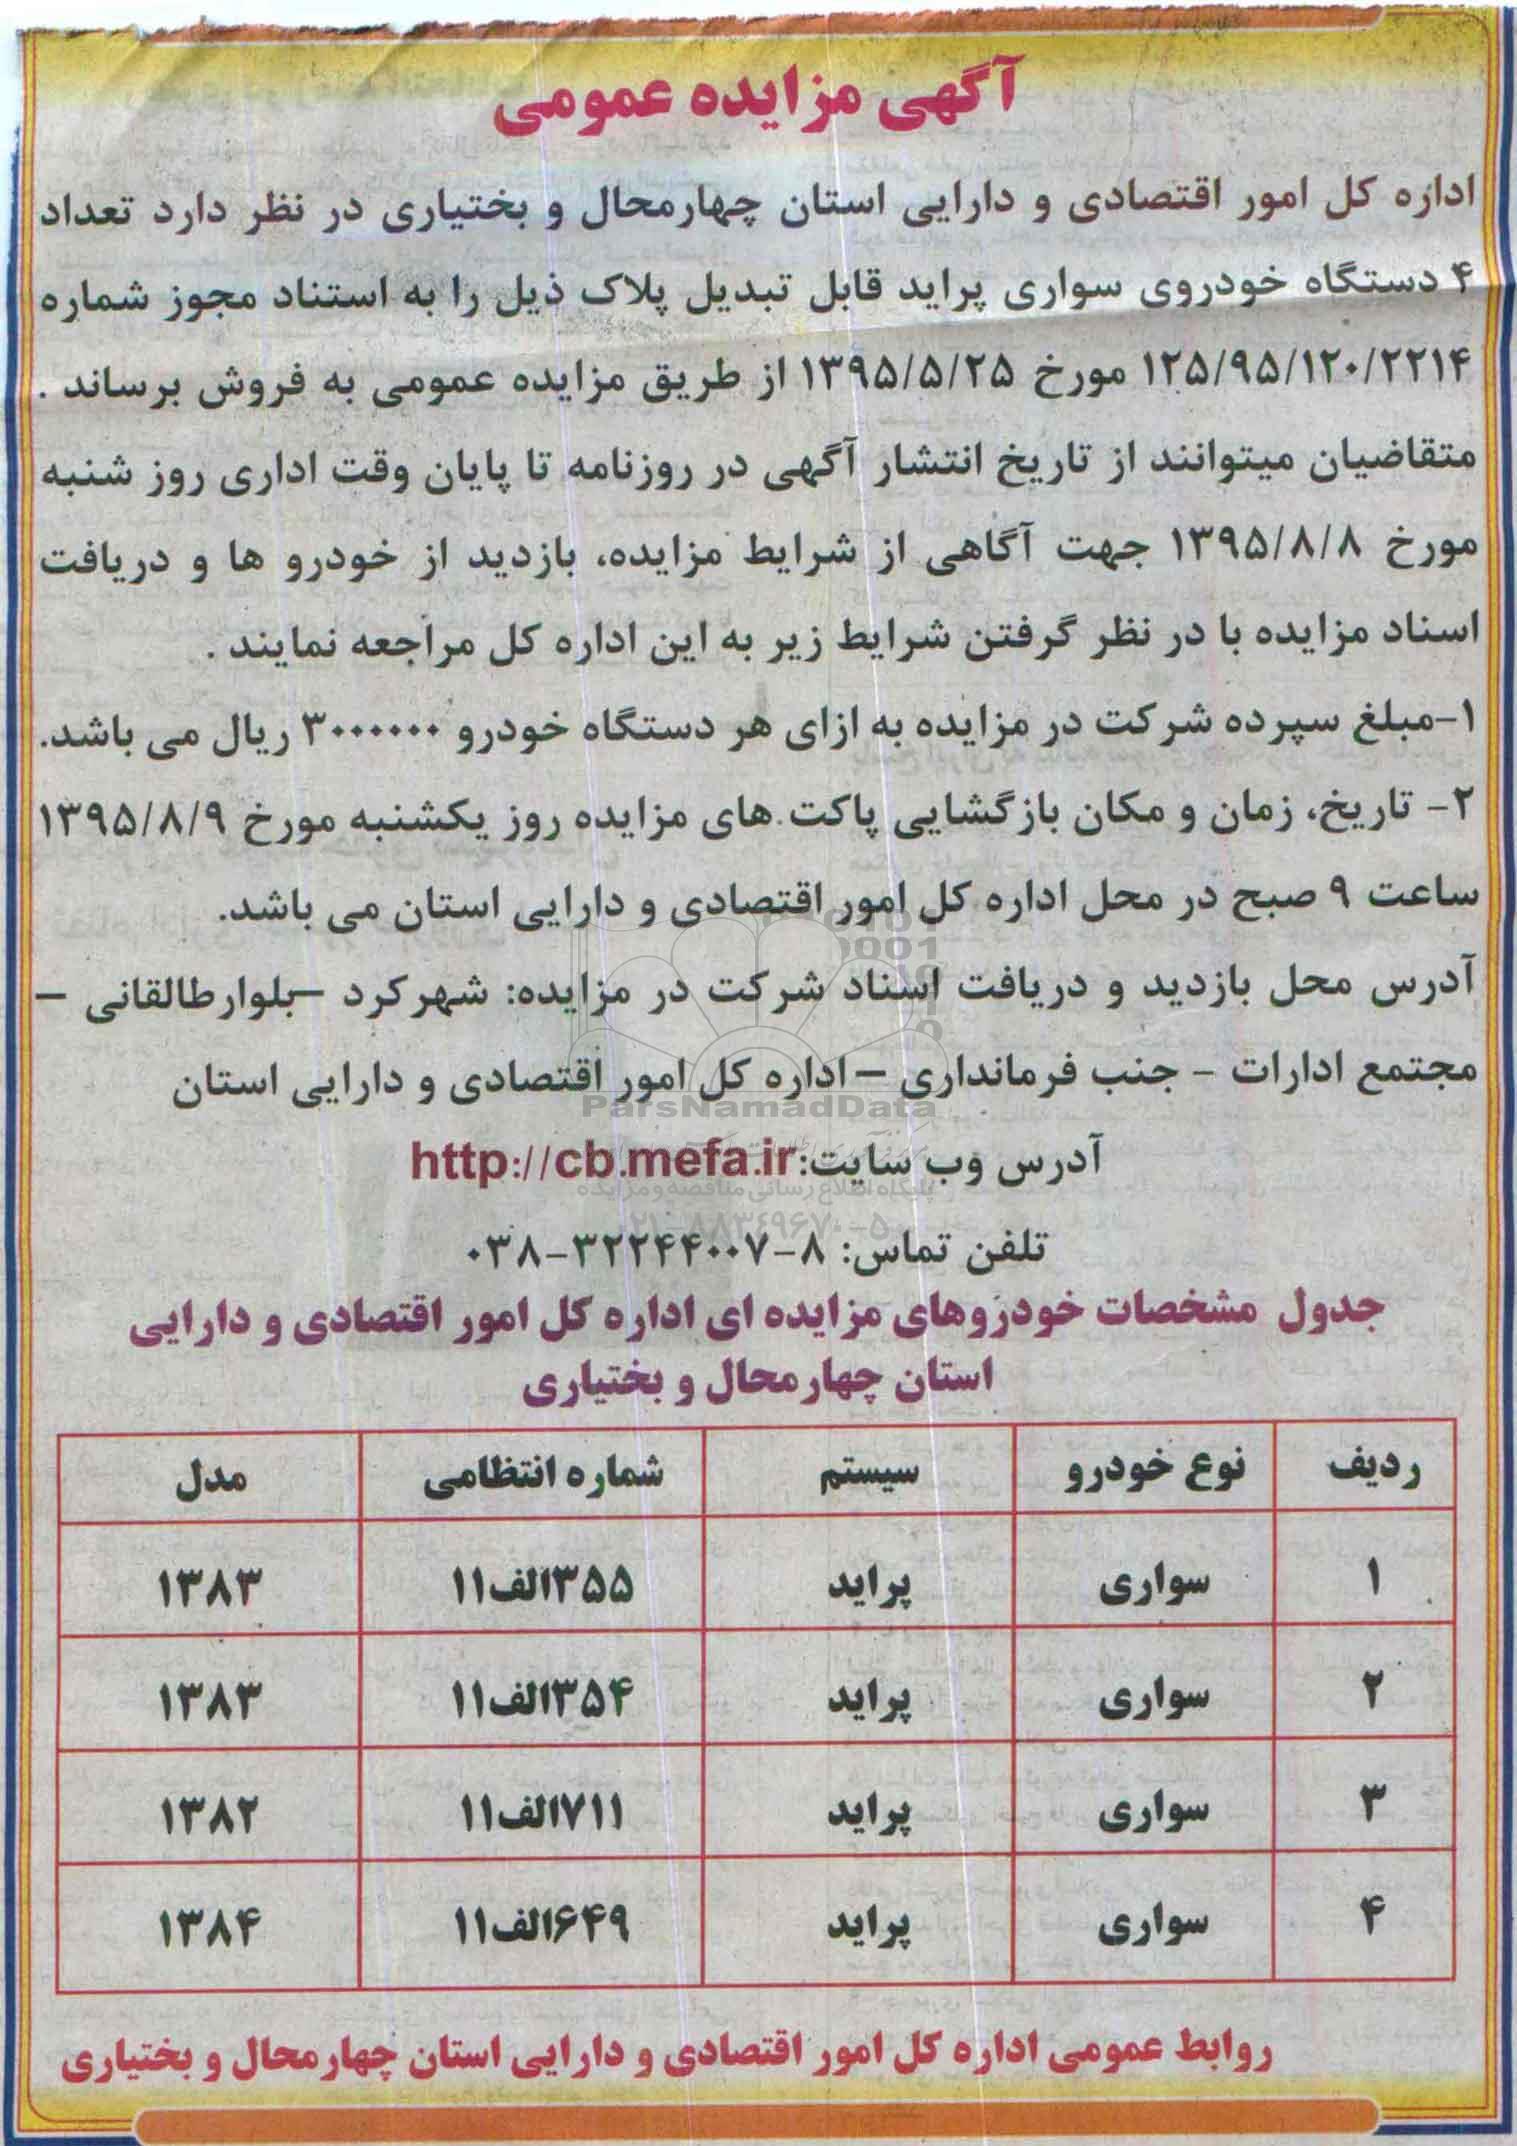 آگهی مزایده عمومی
اداره کل امور اقتصادی و دارایی استان چهارمحال و بختیاری در نظر دارد تعداد
۴ دستگاه خودروی سواری پراید قابل تبدیل پلاک ذیل را به استناد مجوز شماره
۱۲۵/۹۵/۱۲۰/۲۲۱۴ مورخ ۱۳۹۵/۵/۲۵ از طریق مزایده عمومی به فروش برساند .
متقاضیان میتوانند از تاریخ انتشار آگهی در روزنامه تا پایان وقت اداری روز شنبه
مورخ ۱۳۹۵/۸/۸ جهت آگاهی از شرایط مزایده، بازدید از خودرو ها و دریافت
اسناد مزایده با در نظر گرفتن شرایط زیر به این اداره کل مراجعه نمایند .
۱-مبلغ سپرده شرکت در مزایده به ازای هر دستگاه خودرو ۳۰۰۰۰۰۰ ریال می باشد.
۲- تاریخ، زمان و مکان بازگشایی پاکت های مزایده روز یکشنبه مورخ ۱۳۹۵/۸/۹
ساعت ۹ صبح در محل اداره کل امور اقتصادی و دارایی استان می باشد.
آدرس محل بازدید و دریافت اسناد شرکت در مزایده: شهرکرد –بلوارطالقانی –
مجتمع ادارات - جنب فرمانداری –اداره کل امور اقتصادی و دارایی استان
ParsNamadData
آدرس وب سایت:http://cb.mefa.ir
پایگاه اطلاع رسانی مناقصه و مزایده
۰۲۱-۸۸۳۴۹۶۷۰-۵
تلفن تماس: ۸-۳۲۲۴۴۰۰۷-۰۳۸
جدول مشخصات خودروهای مزایده ای اداره کل امور اقتصادی و دارایی
استان چهارمحال و بختیاری
ردیف نوع خودرو سیستم شماره انتظامی مدل
۱ سواری پراید ۳۵۵الف۱۱ ۱۳۸۳
۲ سواری پراید ۳۵۴الف۱۱ ۱۳۸۳
۳ سواری پراید ۷۱۱الف۱۱ ۱۳۸۲
۴ سواری پراید ۶۴۹الف۱۱ ۱۳۸۴
روابط عمومی اداره کل امور اقتصادی و دارایی استان چهارمحال و بختیاری